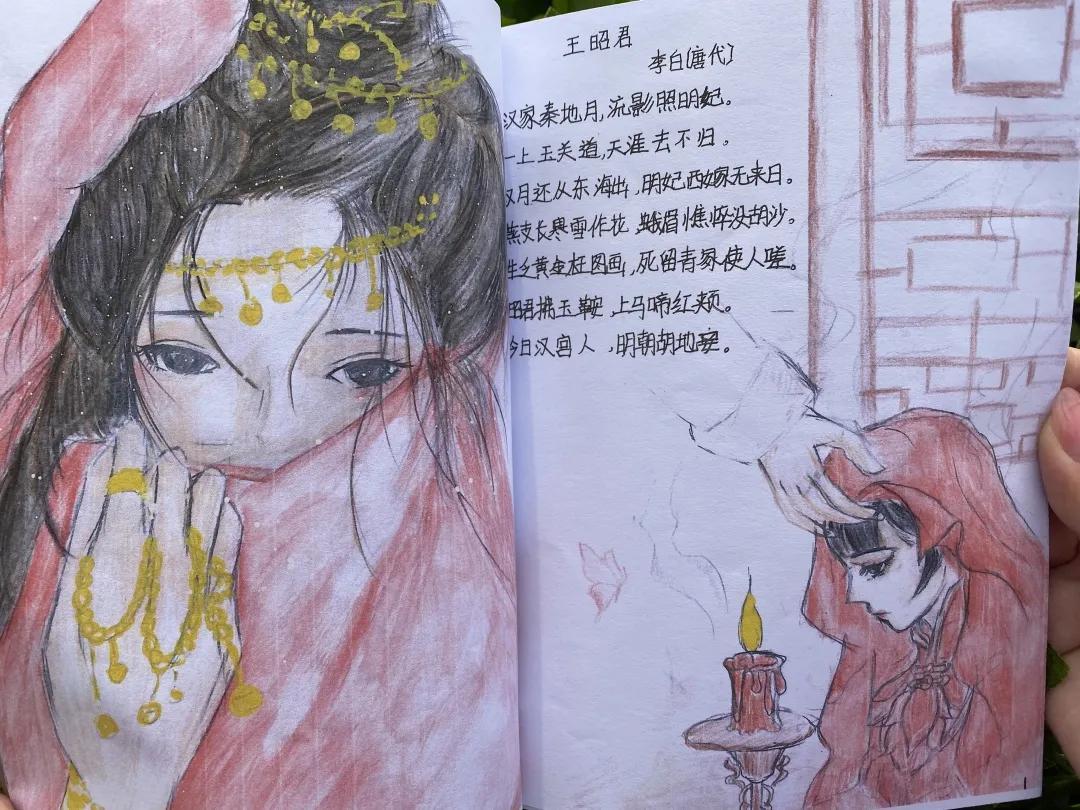 王昭君
李白(唐代)
汉家秦地月,流影照明妃。
一上玉关道,天涯去不归。
汉月还从东海出,明妃西嫁无来日。
燕支长寒雪作花,蛾眉憔悴没胡沙。
生乏黄金枉图画,死留青冢使人嗟。
昭君拂玉鞍,上马啼红颊。
今日汉宫人,明朝胡地妾。